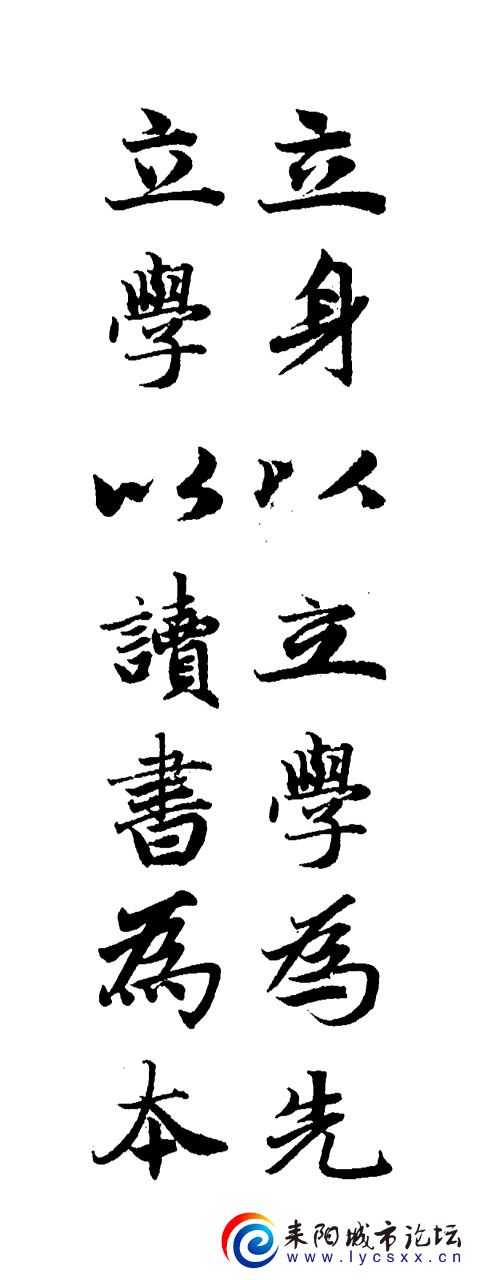 立身以立學為先
立學以讀書為本
耒阳城市论坛
www.lycsxx.cn